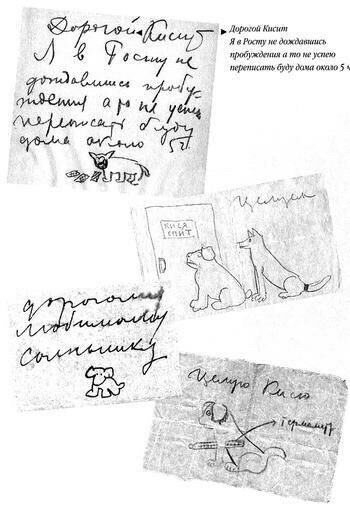 Дорогой Кисит
Я в Росту не
дождавшись пробу-
ждения а то не успею
переписать буду
дома около 5 ч
Дорогой Кисит
Я в Росту не дождавшись
пробуждения а то не успею
переписать буду дома около 5 ч
Целую
КИСА
СПИТ.
дорогому
любимому
солнышку
Целую Кисю
термометр